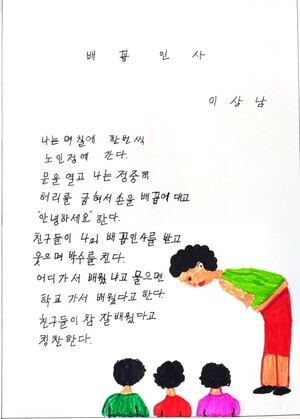 배 꼽 인 사
이 상 남
나는 며칠에 한번씩
노인정에 간다.
문을 열고 나는 정중히
허리를 굽혀서 손을 배꼽에 대고
"안녕하세요" 한다.
친구들이 나의 배꼽인사를 받고
웃으며 박수를 친다.
어디가서 배웠냐고 물으면
학교 가서 배웠다고 한다.
친구들이 참 잘 배웠다고
칭찬한다.